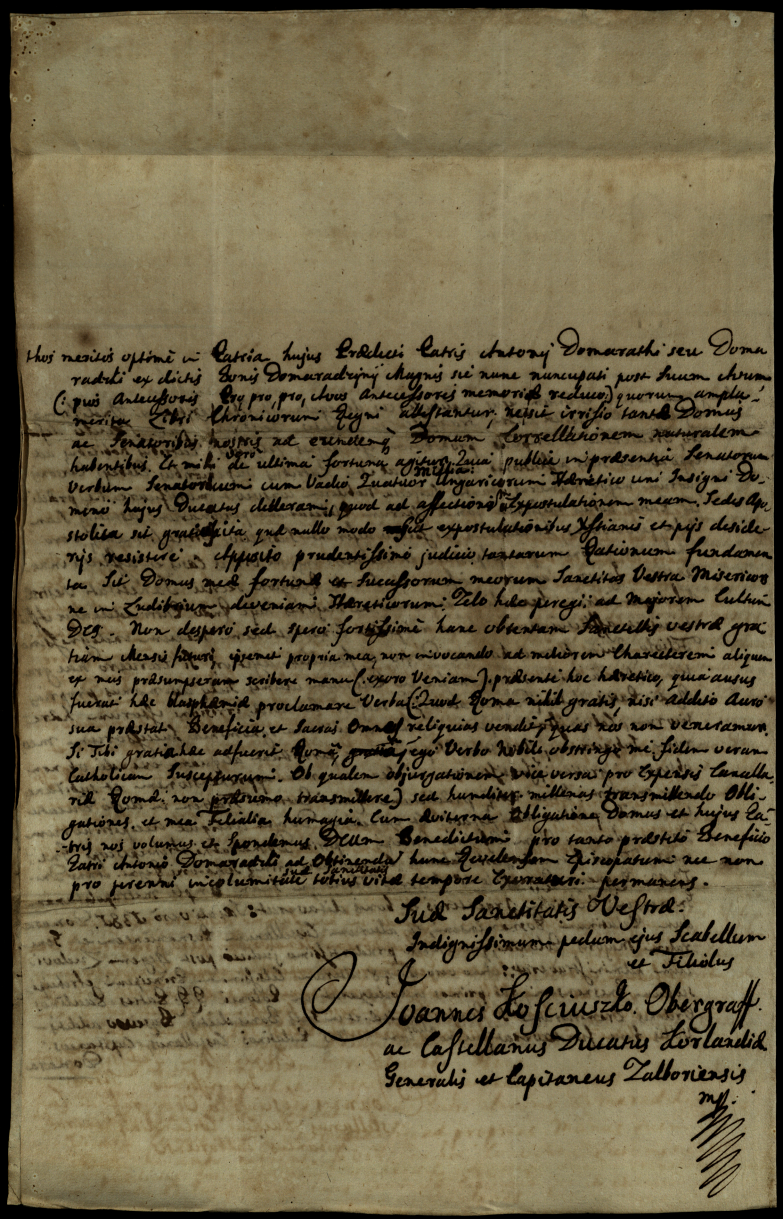 thos meritos optimè in Patria hujus Prædicti Patris Antonij Domarathi seu Doma
radzki ex dictis Domaradzijnij Magnis sic nunc nuncupati post suum
(: pro, pro, Avos Antecessoris memoriæ reduco,) quorum ampla
merita Libri Chronicorum Regni attestantur, ne sit irrisio tantæ Domus
ac Senatoribus nostris ad eundem Domum Correllationem naturalem
habentibus. Et mihi de ultima fortuna agitur, Quia publicè in præsentia Senatorum
Verbum Senatorium cum Vadio Quatuor Millium Ungaricorum Hæretico uni Insigni Do
meno hujus Ducatus dederam, quod ad affectionem Expostulationem meam, Sedes Apo
stolica sit quæ nullo modo expostulationibus Xstianis et pijs deside
rijs resistere. Apposito prudentissimo judicio, tantarum Rationum fundamen
ta Sit Domus meæ fortunæ et Sucessorum meorum Sanctitas Vestra Misericors
ne in Ludibrium deveniam Hæreticorum; Zelo hæc peregi ad Majorem Cultum
DEI. Non despero sed spero fortissimè hanc obtentam Sanctitatis vestræ gra
tiam Mensis futuri, propria mea, non invocando ad meliorem Characterem aliquem
ex meis præsumpseram scribere manu (: exoro Veniam), præsente hoc hæretico, quia ausus
fuerat hæc blasphæmiæ proclamare Verba (: Quod Roma nihil gratis, nisi Addito Auro
sua præstat Beneficia, et Sacras Omnes reliquias vendit, quas nos non veneramur.
Si Tibi gratia hæc adfuerit Romæ, ego Verbo Nobili obstringo me, fidem veram
Catholicam Suscepturum. Ob qualem objurgationem vice versa pro Expensis Cancella
riæ Romæ non præsumo transmittere) sed humiliter millenas transmittendo Obli-
gationes, et mea Filialia humagia. Cum Æviterna Obligatione Domus et hujus Pa
tris nos volumus et Spondemus DEUM Benedictum pro tanto præstito Beneficio
Patri Antonio Domaradzki ad Obtinendum hunc Episcopatum nec non
pro perenni incolumitate suæ Sanctitatis totius vitæ tempore Exoraturi. permanens.
Suæ Sanctitatis Vestræ.
Indignissimum pedum ejus Scabellum
et Filiolus
Joannes Kosciuszko. Obergraff.
ac Castellanus Ducatus Curlandiæ
Generalis et Capitaneus Zalboriensis
mp.